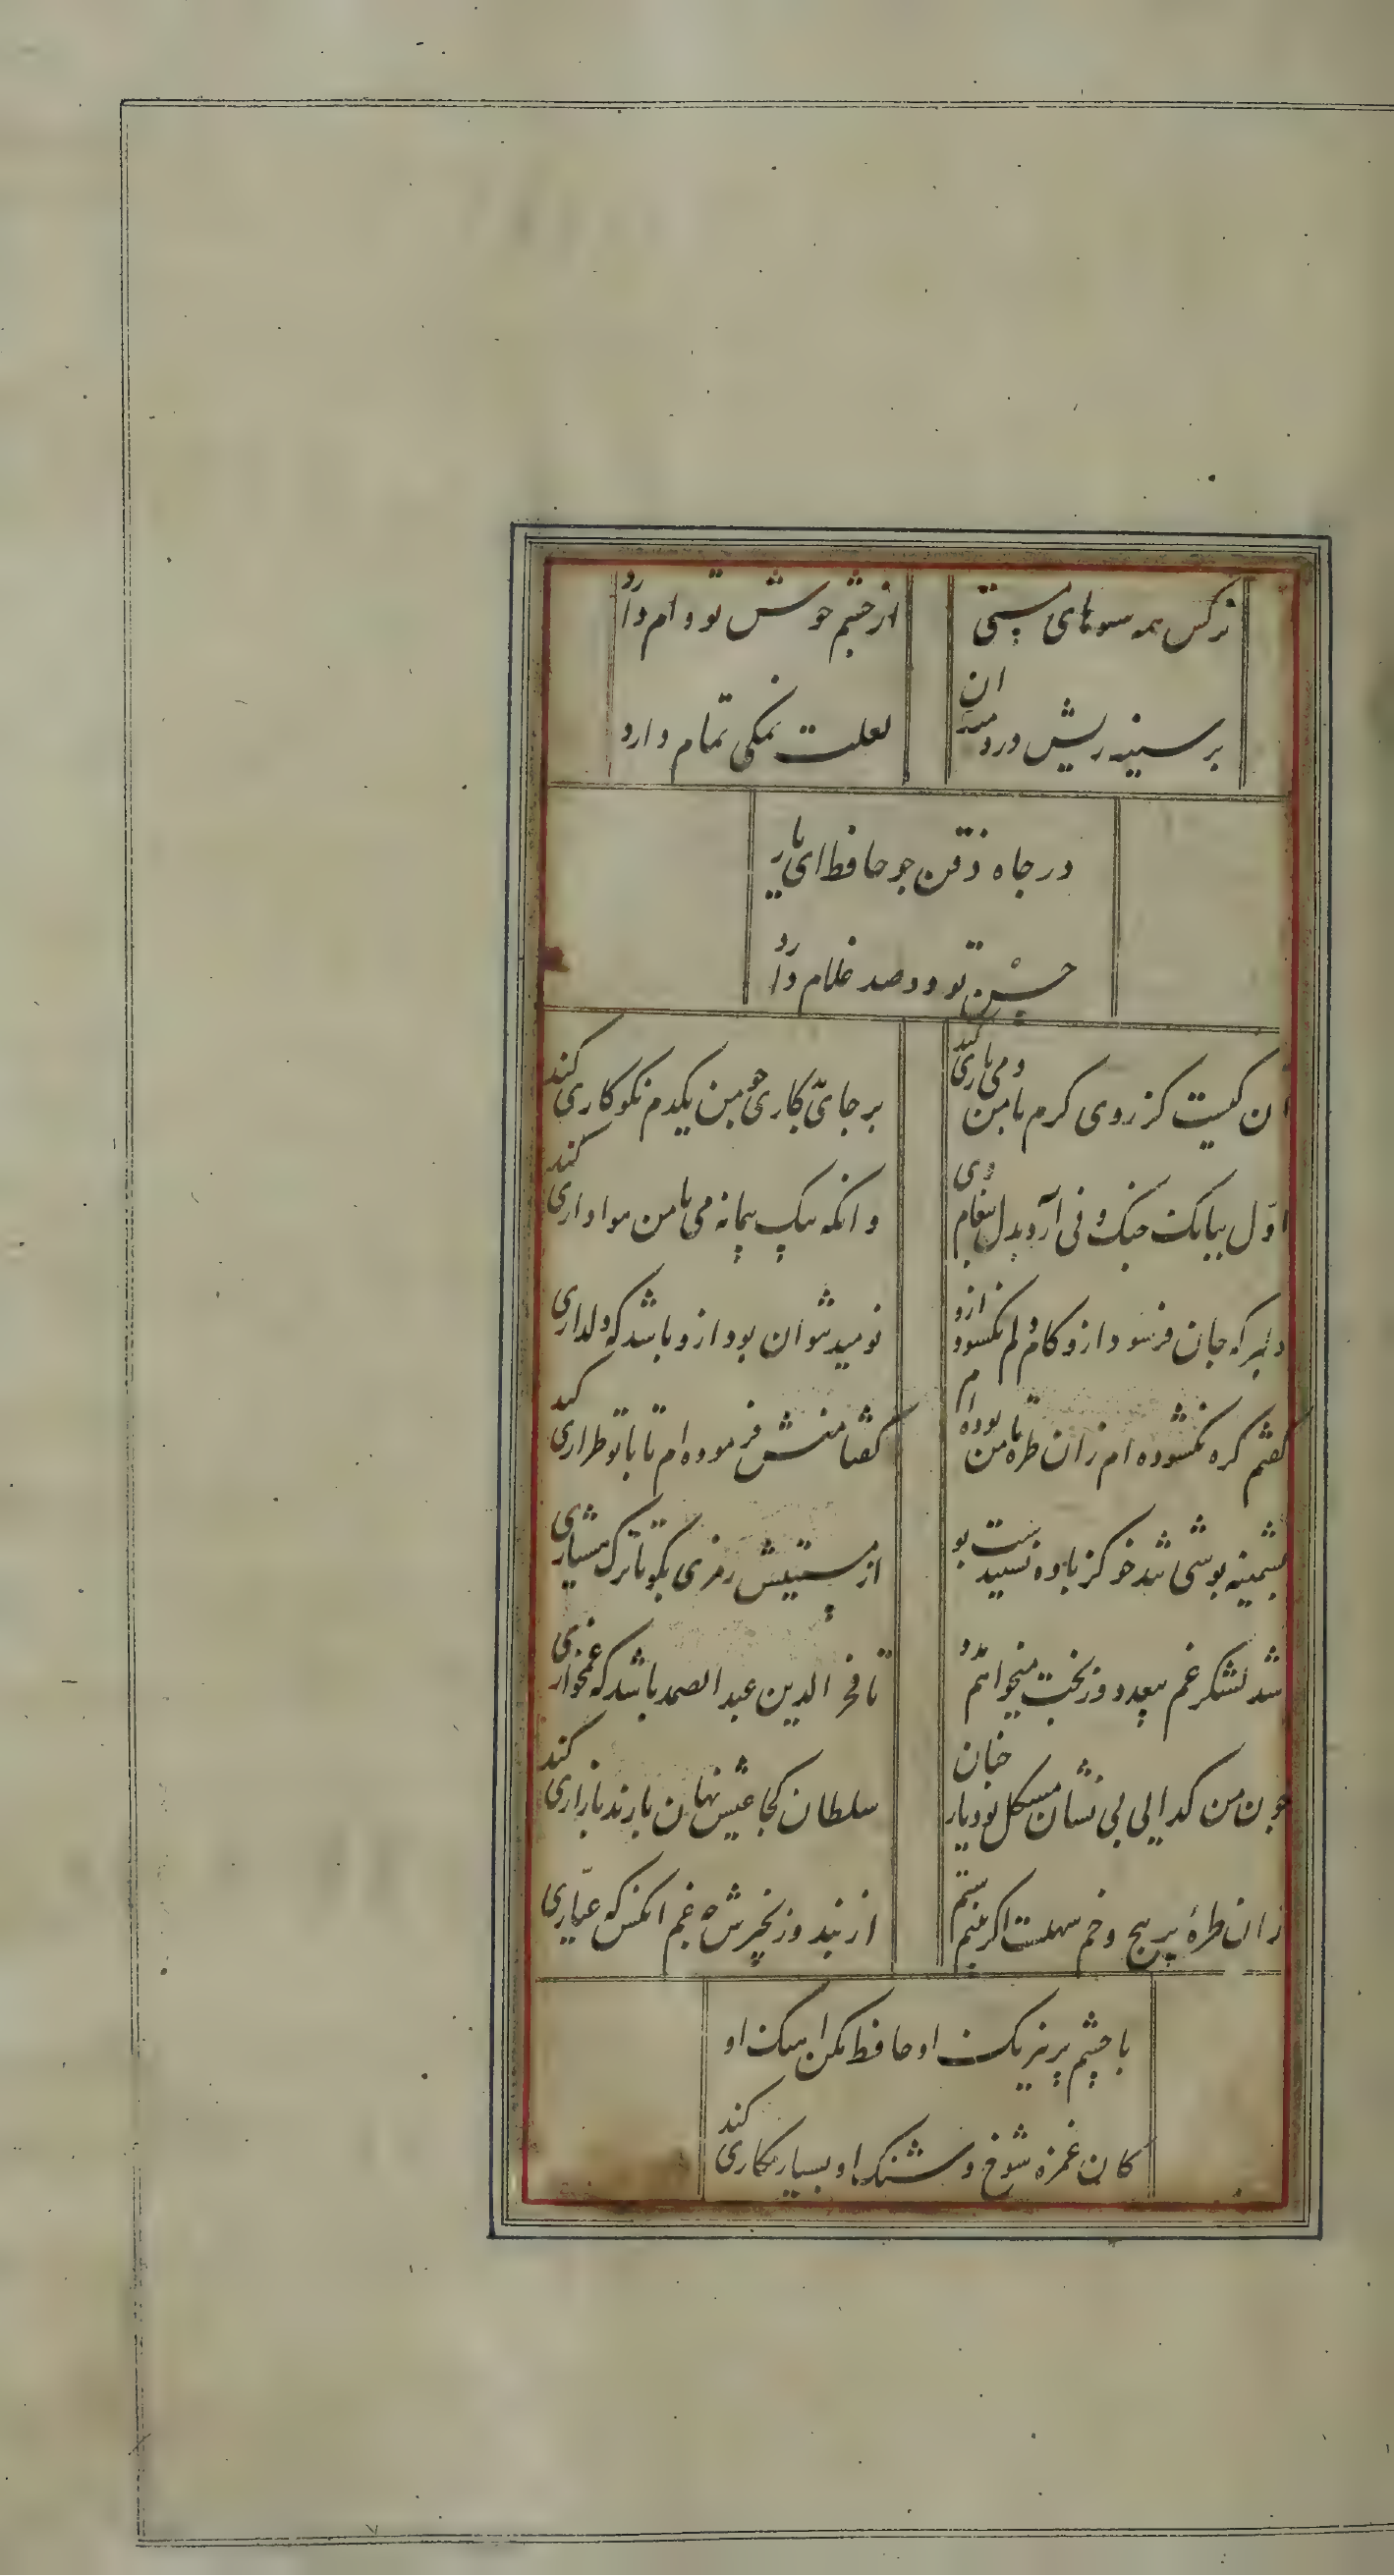 نرکس همه سوهای مستی
از چشم خوش تو وام دارد
بر سینه ریش دردمندان
لعلت نمکی تمام دارد
در جاه ذقن جو حافظ ای یار
حسن تو دو صد غلام دارد
آن کیست کز روی کرم با من و می یاری کند
بر جای بدکاری جو من یکدم نکو کاری کند
اول ببانک جنک و نی آرد بدل پیغام وی
وانکه بیک پیمانه می با من هواداری کند
دلبر که جان فرسود ازو کام دلم نکشود ازو
نومید نتوان بود ازو باشد که دلداری
کفتم کره نکشوده ام زان طره تا من بوده ام
کفتا منش فرموده ام تا با تو طراری کند
پشمینه پوشی تند خو کز باده نشنیدست بو
از مستیش رمزی بکو تا ترک هشیاری
شد لشکر غم بیعدد وز بخت میخواهم مدد
تا فخر الدین عبد الصمد باشد که غمخواری
جون من کدایی بی نشان مشکل بود یار جنان
سلطان کجا عیش نهان با رند بازاری کند
زان طرهٔ پر پیج و خم سهلست اکر بینم ستم
از بند و زنجیرش چه غم انکس که عیاری
با چشم پر نیرنک او حافظ مکن اهنک او
کان غمزه شوخ و شنک او بسیار مکاری کند